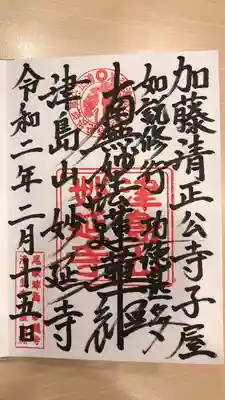 加藤清正公寺子屋
如説修行功徳甚多
南無妙法蓮華経
津島山妙延寺
令和二年二月十五日
津島山
妙延寺